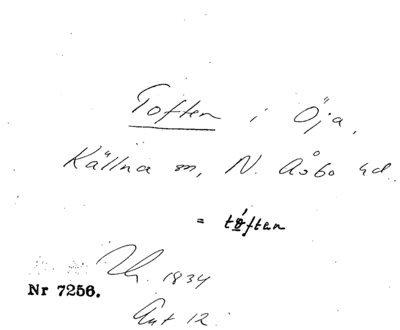 Toften i Öja,
Källna sn, N. Åsbo hd
= tóften
Lh. 1834
Nr 7256.
Ant 12.